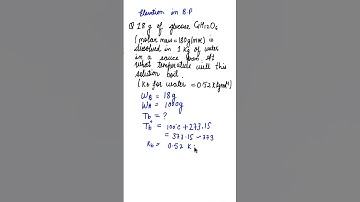 Elevation in B.P
Q 18 g of glucose C6H12O6
(molar mass = 180 g/mol) is
dissolved in 1 Kg of water
in a sauce pan. At
what temperature will this
solution boil.
(Kb for water = 0.52 K kg mol⁻¹)
WB = 18g
WA = 1000g
Tb = ?
Tb° = 100°C + 273.15
= 373.15
Kb = 0.52 K